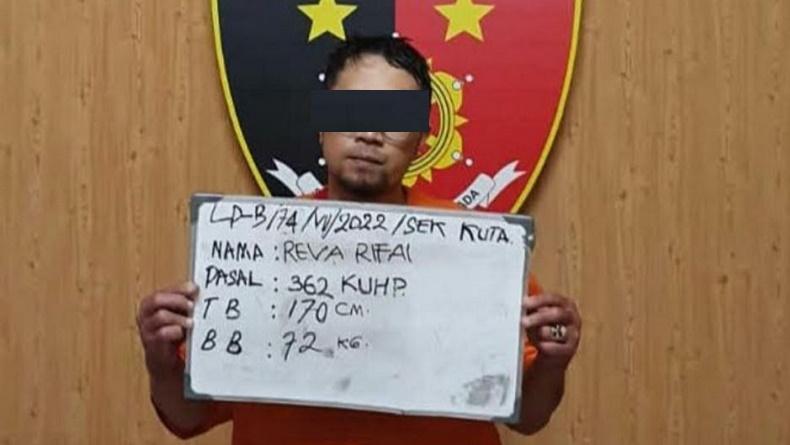 LP-B/74/VI/2022/SEK KUTA.
NAMA : REVA RIFAI
PASAL : 362 KUHP.
TB : 170 CM.
BB : 72 KG.